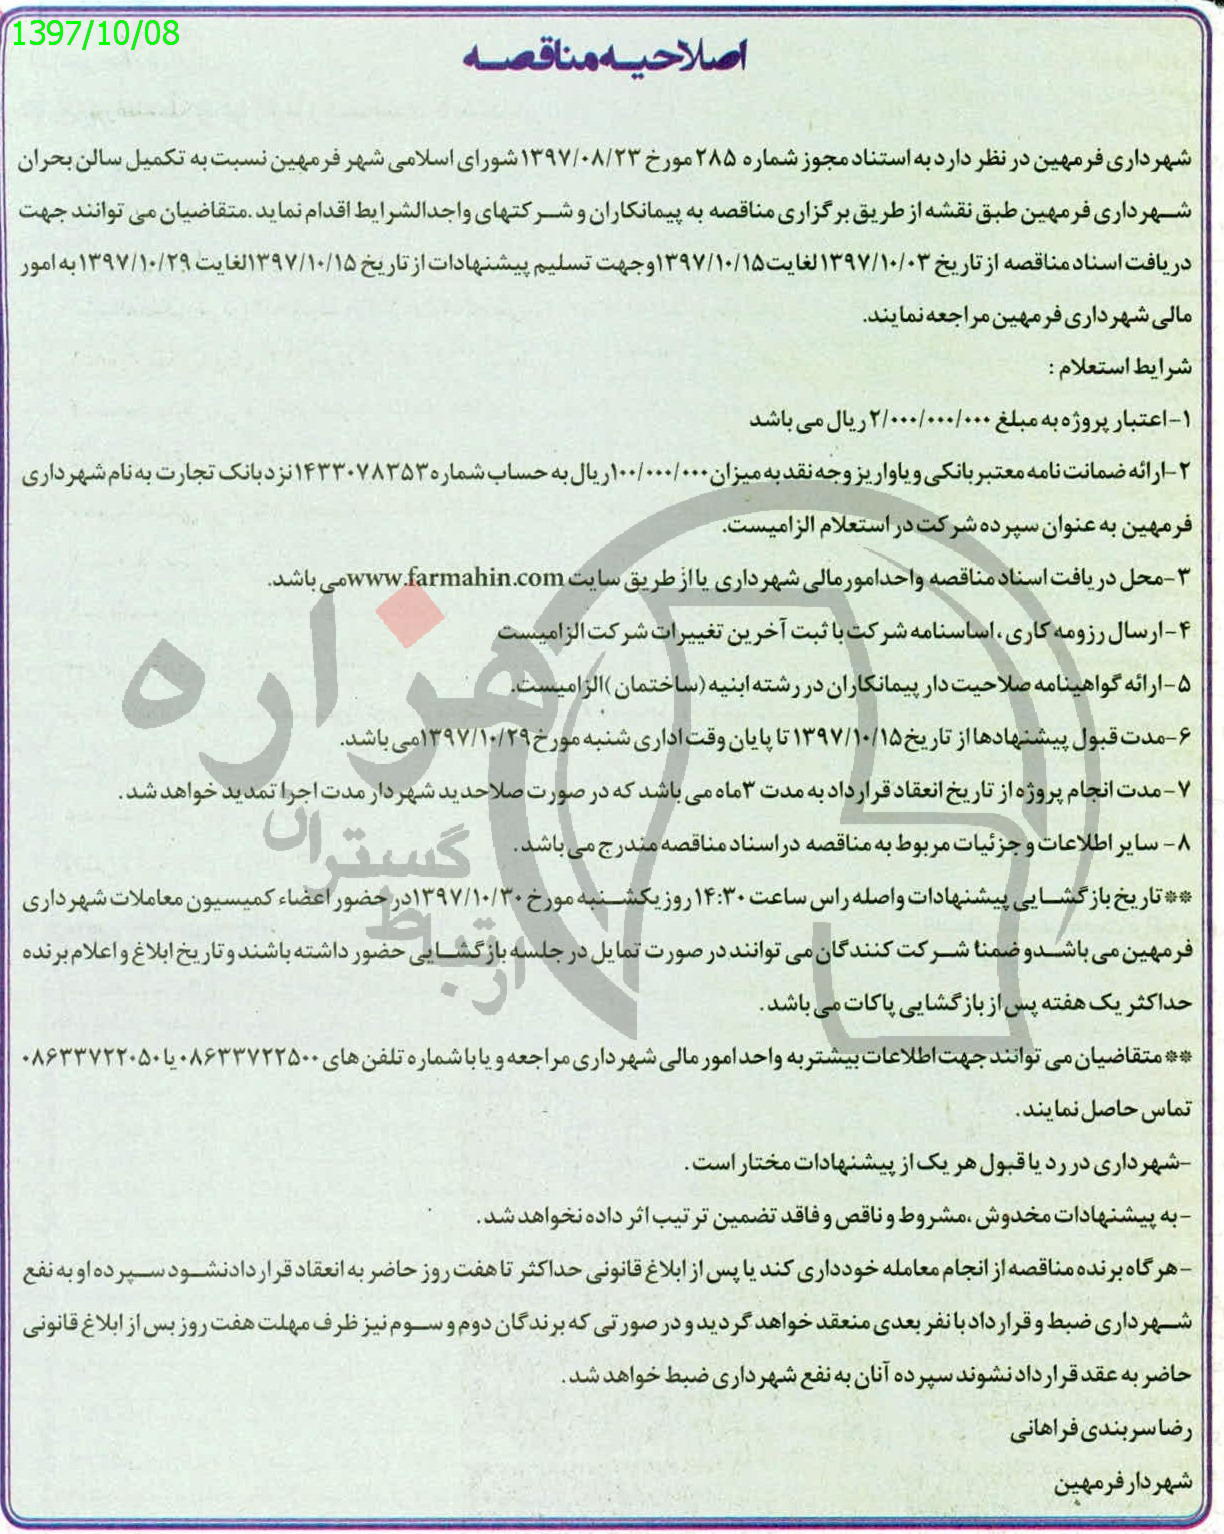 1397/10/08
اصلاحیه مناقصه
شهرداری فرمهین در نظر دارد به استناد مجوز شماره ۲۸۵ مورخ ۱۳۹۷/۰۸/۲۳ شورای اسلامی شهر فرمهین نسبت به تکمیل سالن بحران
شهرداری فرمهین طبق نقشه از طریق برگزاری مناقصه به پیمانکاران و شرکتهای واجدالشرایط اقدام نماید.متقاضیان می توانند جهت
دریافت اسناد مناقصه از تاریخ ۱۳۹۷/۱۰/۰۳ لغایت ۱۳۹۷/۱۰/۱۵ وجهت تسلیم پیشنهادات از تاریخ ۱۳۹۷/۱۰/۱۵ لغایت ۱۳۹۷/۱۰/۲۹ به امور
مالی شهرداری فرمهین مراجعه نمایند.
شرایط استعلام :
۱-اعتبار پروژه به مبلغ ۲/۰۰۰/۰۰۰/۰۰۰ ریال می باشد
۲-ارائه ضمانت نامه معتبر بانکی و یا واریز وجه نقد به میزان ۱۰۰/۰۰۰/۰۰۰ ریال به حساب شماره ۱۴۳۳۰۷۸۳۵۳ نزد بانک تجارت به نام شهرداری
فرمهین به عنوان سپرده شرکت در استعلام الزامیست.
۳-محل دریافت اسناد مناقصه واحد امور مالی شهرداری یا از طریق سایت www.farmahin.com می باشد.
۴-ارسال رزومه کاری ، اساسنامه شرکت با ثبت آخرین تغییرات شرکت الزامیست
۵-ارائه گواهینامه صلاحیت دار پیمانکاران در رشته ابنیه (ساختمان )الزامیست.
۶-مدت قبول پیشنهادها از تاریخ ۱۳۹۷/۱۰/۱۵ تا پایان وقت اداری شنبه مورخ ۱۳۹۷/۱۰/۲۹ می باشد.
۷-مدت انجام پروژه از تاریخ انعقاد قرارداد به مدت ۳ ماه می باشد که در صورت صلاحدید شهردار مدت اجرا تمدید خواهد شد .
۸- سایر اطلاعات و جزئیات مربوط به مناقصه در اسناد مناقصه مندرج می باشد .
**تاریخ بازگشایی پیشنهادات واصله راس ساعت ۱۴:۳۰ روز یکشنبه مورخ ۱۳۹۷/۱۰/۳۰ در حضور اعضاء کمیسیون معاملات شهرداری
فرمهین می باشدو ضمنا شرکت کنندگان می توانند در صورت تمایل در جلسه بازگشایی حضور داشته باشند و تاریخ ابلاغ و اعلام برنده
حداکثر یک هفته پس از بازگشایی پاکات می باشد .
** متقاضیان می توانند جهت اطلاعات بیشتر به واحد امور مالی شهرداری مراجعه و یا با شماره تلفن های ۰۸۶۳۳۷۲۲۵۰۰ یا ۰۸۶۳۳۷۲۲۰۵۰
تماس حاصل نمایند .
-شهرداری در رد یا قبول هر یک از پیشنهادات مختار است .
-به پیشنهادات مخدوش ،مشروط و ناقص و فاقد تضمین ترتیب اثر داده نخواهد شد .
-هر گاه برنده مناقصه از انجام معامله خودداری کند یا پس از ابلاغ قانونی حداکثر تا هفت روز حاضر به انعقاد قرارداد نشود سپرده او به نفع
شهرداری ضبط و قرارداد با نفر بعدی منعقد خواهد گردید و در صورتی که برندگان دوم و سوم نیز ظرف مهلت هفت روز پس از ابلاغ قانونی
حاضر به عقد قرارداد نشوند سپرده آنان به نفع شهرداری ضبط خواهد شد .
رضا سربندی فراهانی
شهردار فرمهین
هزاره
گستران
ارتباط